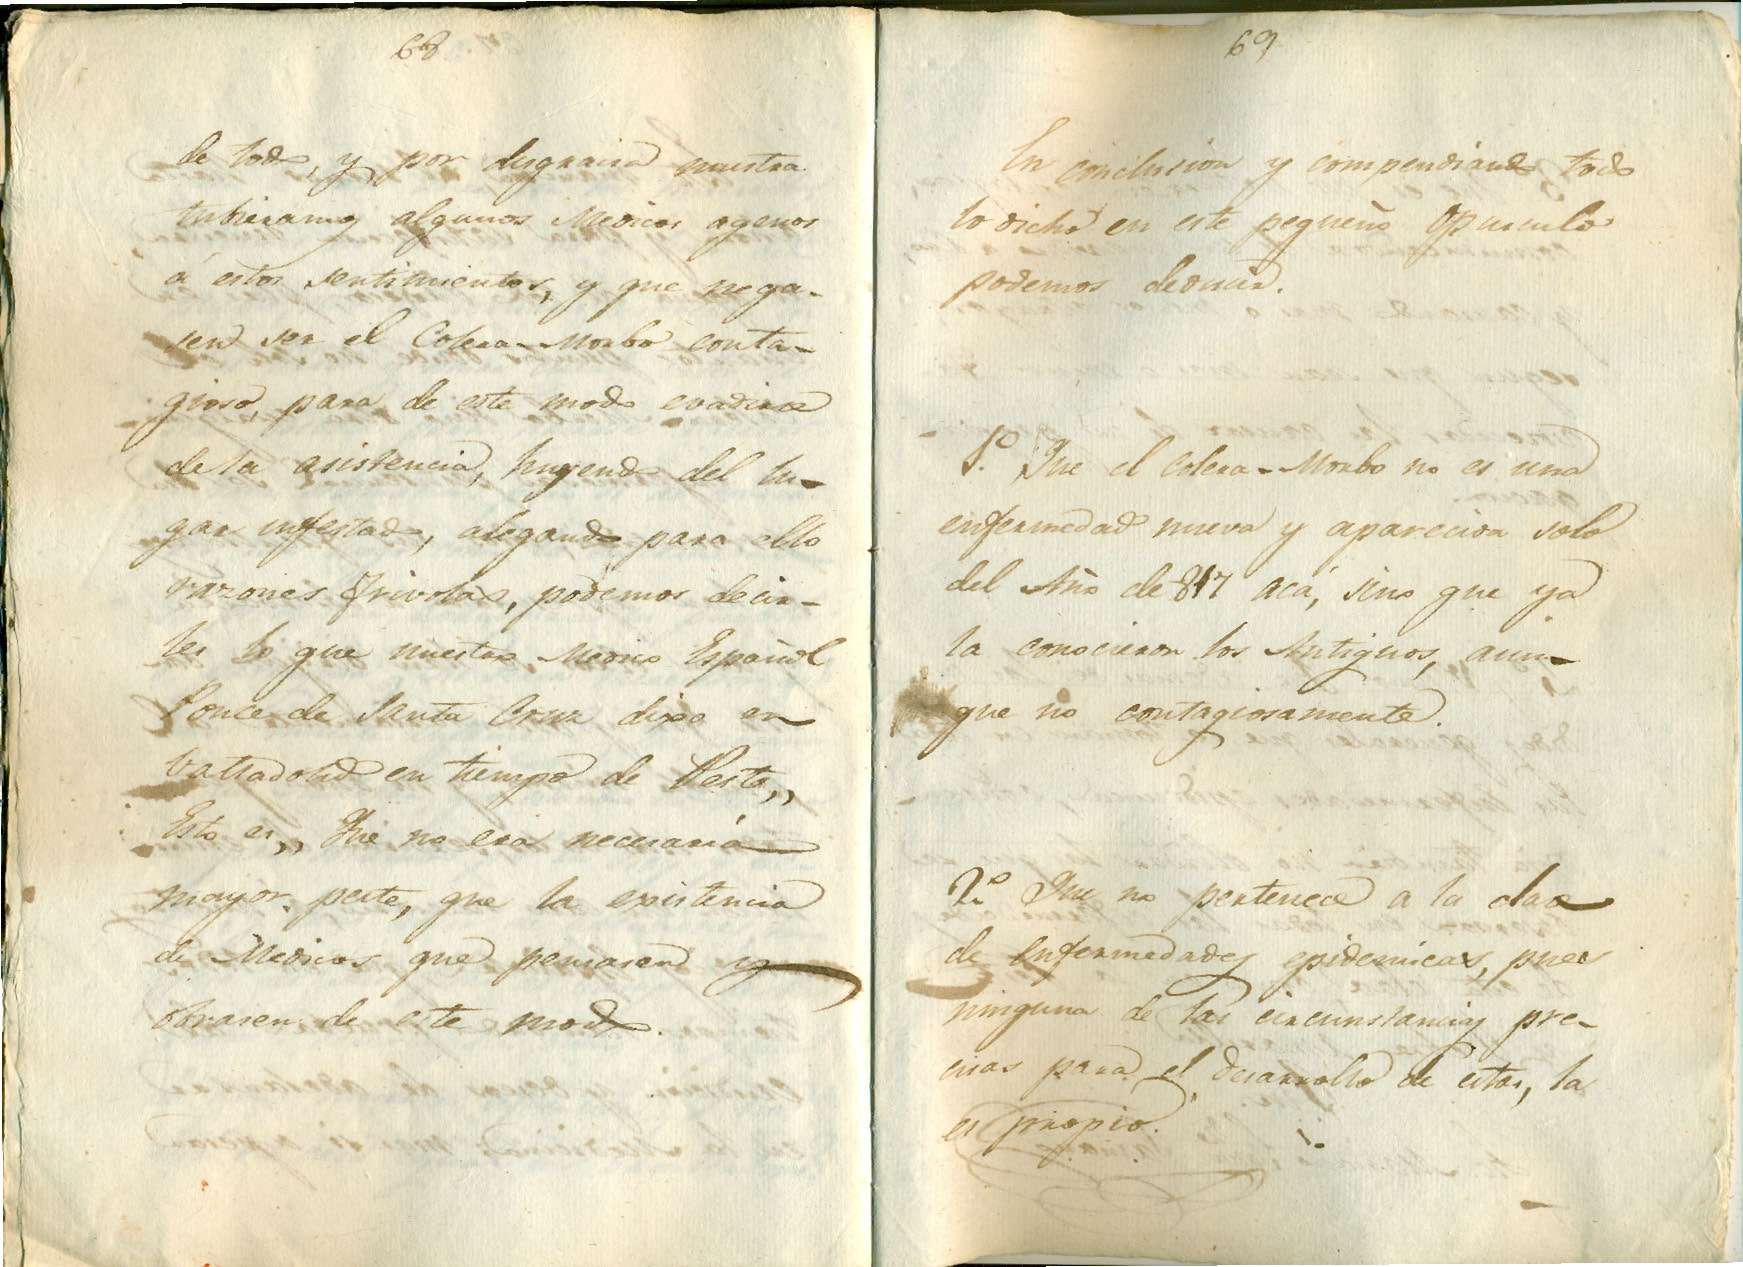 68
de todo, y por desgracia nuestra
tubieramos algunos Medicos agenos
á estos sentimientos, y que nega-
sen ser el Colera-Morbo conta-
gioso, para de este modo evadirse
de la asistencia, huyendo del lu-
gar infestado, alegando para ello
razones frivolas, podemos decir-
les lo que nuestro Medico Español
Ponce de Santa Cruz dixo en
Valladolid en tiempo de Peste,,
Esto es,, Que no era necesaria
mayor peste, que la existencia
de Medicos que pensasen y
obrasen de este modo.
69
En conclusion y compendiando todo
lo dicho en este pequeño Opusculo
podemos deducir.
1.º Que el Colera-Morbo no es una
enfermedad nueva y aparecida solo
del Año de 817 acá, sino que ya
la conocieron los Antiguos, aun-
que no contagiosamente.
2.º Que no pertenece a la clase
de enfermedades epidemicas, pues
ninguna de las circunstancias pre-
cisas para el desarrollo de estas, la
es propio.